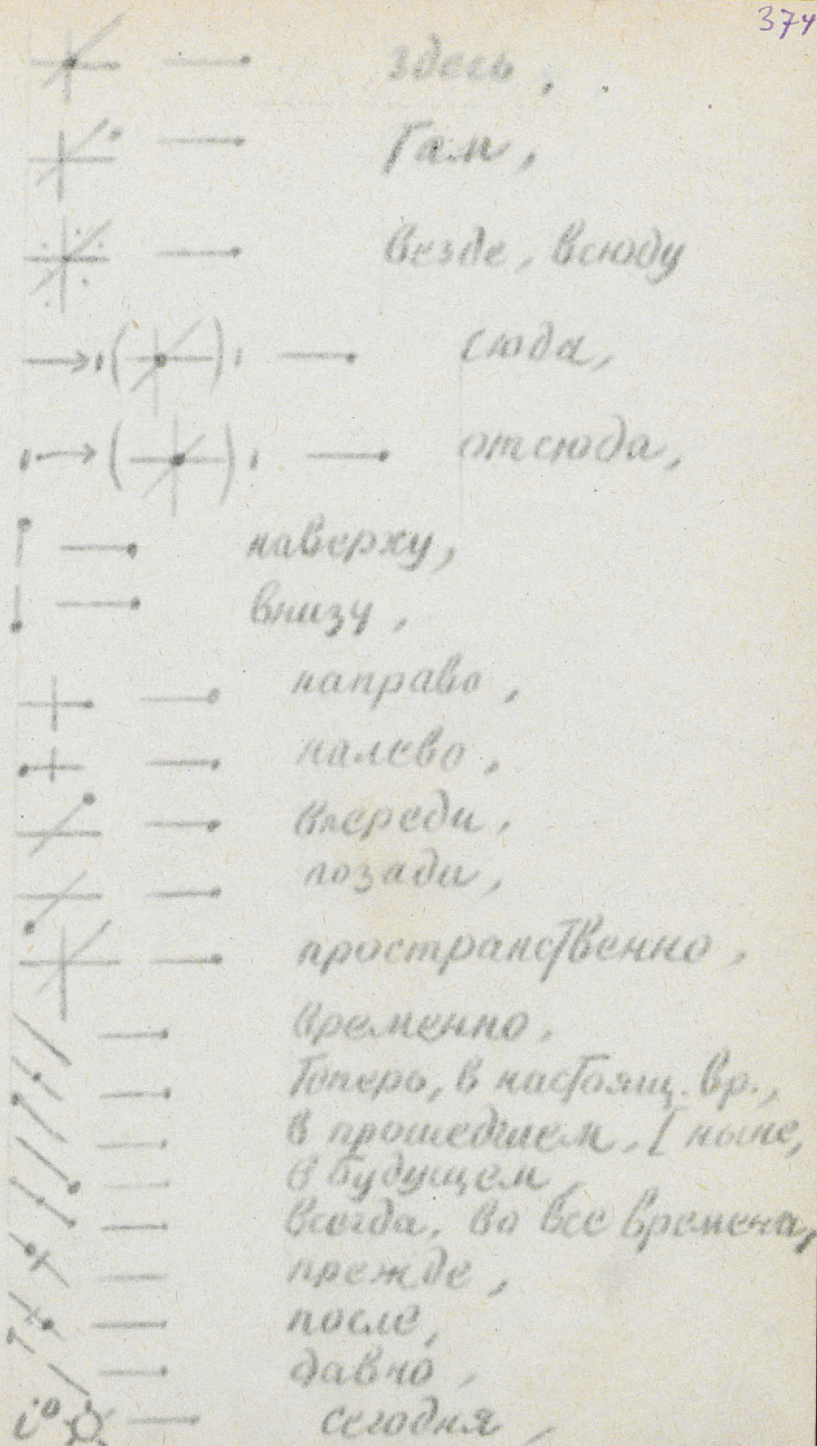 374
здесь,
Там,
везде, всюду
сюда,
отсюда,
наверху,
внизу,
направо,
налево,
впереди,
позади,
пространственно,
временно,
Теперь, в настоящ. вр.,
в прошедшем, [ ныне,
в будущем,
всегда, во все времена,
прежде,
после,
давно,
сегодня,